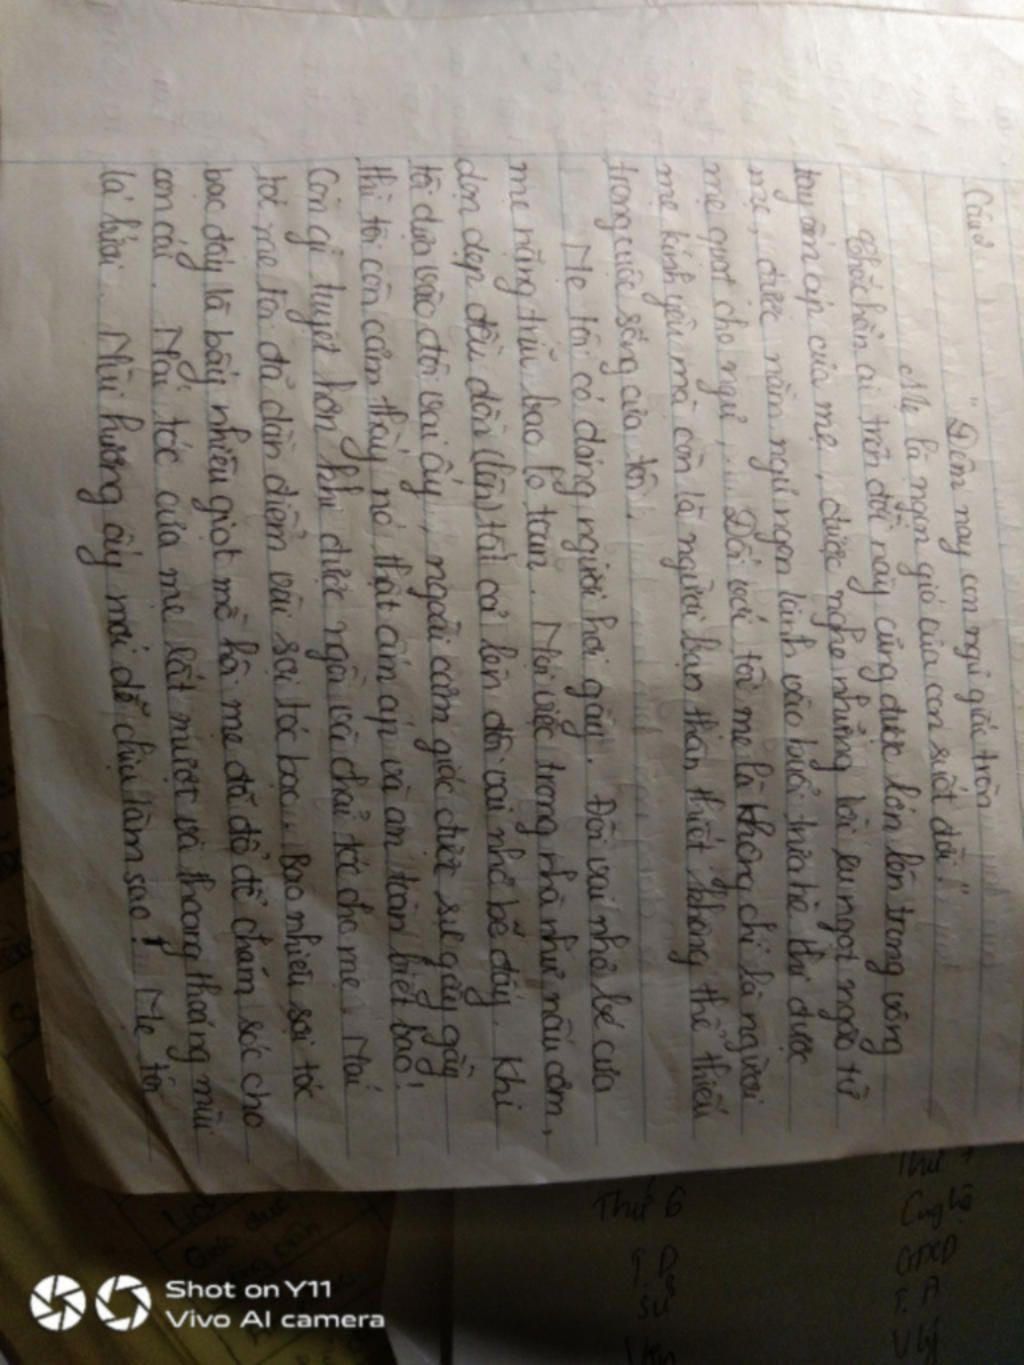 Câu 2.
"Đêm nay con ngủ giấc tròn
Mẹ là ngọn gió của con suốt đời"
Chắc hẳn ai trên đời này cũng được lớn lên trong vòng
tay ấm áp của mẹ, được nghe những lời ru ngọt ngào từ
mẹ, được nằm ngủ ngon lành vào buổi trưa hè khi được
mẹ quạt cho ngủ,... Đối với tôi mẹ là không chỉ là người
mẹ kính yêu mà còn là người bạn thân thiết không thể thiếu
trong cuộc sống của tôi.
Mẹ tôi có dáng người hơi gầy. Đôi vai nhỏ bé của
mẹ nặng trĩu bao lo toan. Mọi việc trong nhà như nấu cơm,
dọn dẹp đều dồn (lên) tất cả lên đôi vai nhỏ bé đấy. Khi
tôi dựa vào đôi vai ấy, ngoài cảm giác được sự gầy gầy
thì tôi còn cảm thấy nó thật ấm áp và an toàn biết bao!
Còn gì tuyệt hơn khi được ngồi và chải tóc cho mẹ. Mái
tóc mẹ tôi đã dần điểm vài sợi tóc bạc. Bao nhiêu sợi tóc
bạc đấy là bấy nhiêu giọt mồ hôi mẹ đã đổ để chăm sóc cho
con cái. Mái tóc của mẹ lất mượt và thoang thoảng mùi
lá bưởi. Mùi hương ấy mới dễ chịu làm sao! Mẹ tôi
Thứ 6
T.D
Sử
Văn
Thứ 7
Cnghệ
GDCD
T.A
V lý
Shot on Y11
Vivo AI camera